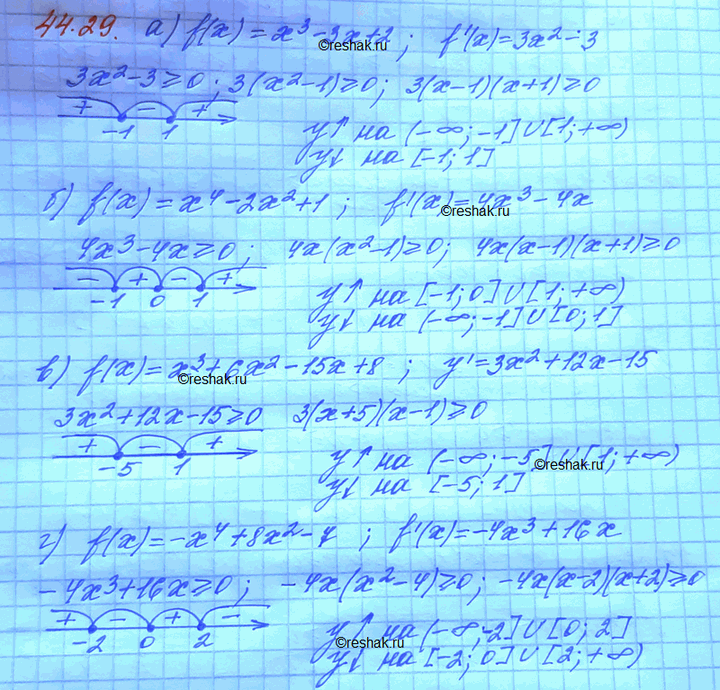 44.29. а) f(x) = x³ - 3x + 2 ; f'(x) = 3x² - 3
©reshak.ru
3x² - 3 ≥ 0 ; 3(x² - 1) ≥ 0 ; 3(x - 1)(x + 1) ≥ 0
+ - +
-1 1
y↑ на (-∞; -1] U [1; +∞)
©reshak.ru
y↓ на [-1; 1]
б) f(x) = x⁴ - 2x² + 1 ; f'(x) = 4x³ - 4x
©reshak.ru
4x³ - 4x ≥ 0 ; 4x(x² - 1) ≥ 0 ; 4x(x - 1)(x + 1) ≥ 0
- + - +
-1 0 1
y↑ на [-1; 0] U [1; +∞)
y↓ на (-∞; -1] U [0; 1]
в) f(x) = x³ + 6x² - 15x + 8 ; y' = 3x² + 12x - 15
©reshak.ru
3x² + 12x - 15 ≥ 0 3(x + 5)(x - 1) ≥ 0
+ - +
-5 1
y↑ на (-∞; -5] U [1; +∞)
©reshak.ru
y↓ на [-5; 1]
г) f(x) = -x⁴ + 8x² - 7 ; f'(x) = -4x³ + 16x
-4x³ + 16x ≥ 0 ; -4x(x² - 4) ≥ 0 ; -4x(x - 2)(x + 2) ≥ 0
+ - + -
-2 0 2
y↑ на (-∞; -2] U [0; 2]
©reshak.ru
y↓ на [-2; 0] U [2; +∞)